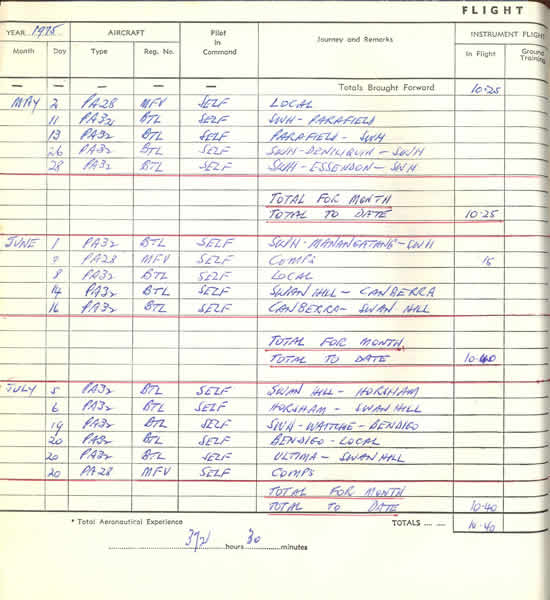 FLIGHT
YEAR 1975 AIRCRAFT Pilot In Command Journey and Remarks INSTRUMENT FLIGHT
Month Day Type Reg. No. In Flight Ground Training
— — — — — Totals Brought Forward 10·25
MAY 2 PA28 MFV SELF LOCAL
11 PA32 BTL SELF SWH - PARAFIELD
13 PA32 BTL SELF PARAFIELD - SWH
26 PA32 BTL SELF SWH - DENILIQUIN - SWH
28 PA32 BTL SELF SWH - ESSENDON - SWH
TOTAL FOR MONTH
TOTAL TO DATE 10·25
JUNE 1 PA32 BTL SELF SWH - MANANGATANG - SWH
7 PA28 MFV SELF COMPS 15
8 PA32 BTL SELF LOCAL
14 PA32 BTL SELF SWAN HILL - CANBERRA
16 PA32 BTL SELF CANBERRA - SWAN HILL
TOTAL FOR MONTH
TOTAL TO DATE 10·40
JULY 5 PA32 BTL SELF SWAN HILL - HORSHAM
6 PA32 BTL SELF HORSHAM - SWAN HILL
19 PA32 BTL SELF SWH - WAITCHIE - BENDIGO
20 PA32 BTL SELF BENDIGO - LOCAL
20 PA32 BTL SELF ULTIMA - SWAN HILL
20 PA28 MFV SELF COMPS
TOTAL FOR MONTH
TOTAL TO DATE 10·40
* Total Aeronautical Experience TOTALS 10·40
372 hours 30 minutes